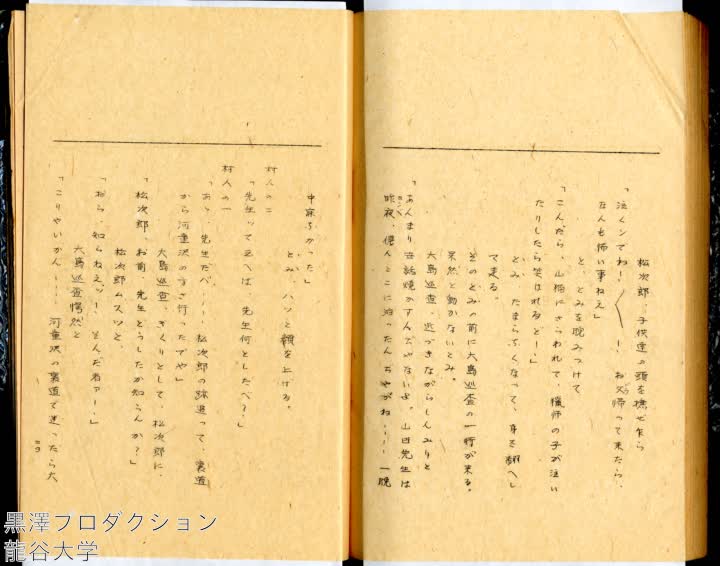 松次郎、子供達の頭を撫ぜ乍ら
「泣くンでねー！〱ー！、お父帰って来たら、
なんも怖い事ねえ」
と、とみを睨みつけて
「こんだら、山稲にさらわれて、猟師の子が泣い
たりしたら笑はれるどー！」
とみ、たまらなくなって、身を翻へし
て走る。
そのとみの前に大島巡査の一行が来る。
果然と動かないとみ。
大島巡査、近づきながらしんみりと
「あんまり世話焼かすんでやないよ。山田先生は
昨夜、俺んとこに泊ったんぢやがね・・・一晩
中寐ろかった」
とみ、ハッと顔を上げる。
村人の二
「先生って云へば、先生何としたべ？」
村人の一
「あゝ先生だべ・・・松次郎の跡追って、裏道
から河童沢の方さ行ったでや」
大島巡査、ぎくりとして、松次郎に、
「松次郎、お前、先生どうしたか知らんか？」
松次郎ムスッと、
「おら、知らねえッ！、とんだ者ァー！」
大島巡査愕然と
「こりやいかん！・・・河童沢の裏道で迷ったら大
黒澤プロダクション
龍谷大学